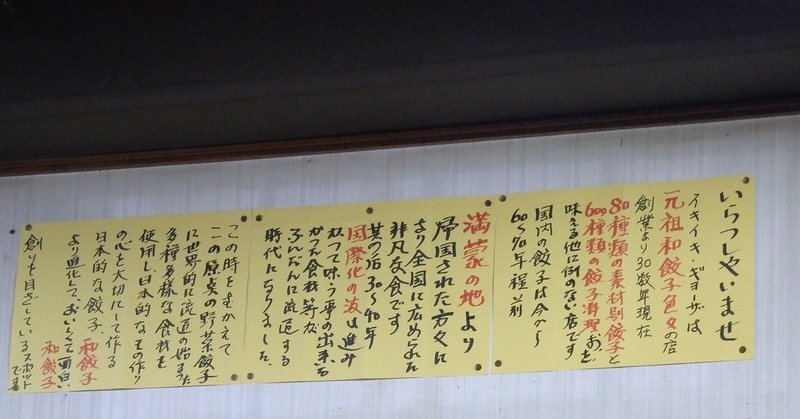 いらつしやいませ
イキイキ・ギョーザは
元祖和餃子色々の店
創業より30数年現在
80種類の素材別餃子と
600種類の餃子料理が
味える他に例のない店です
国内の餃子は今から
60〜70年程前
満蒙の地より
帰国された方々に
より全国に広められた
非凡な食です
其の后30〜40年
国際化の波は進み
かつて味う事の出来る
かつた食材等が
ふんだんに流通する
時代になりました、
この時をむかえて
この原点の野菜餃子
に世界的に流通の始まつた
多種多様な食材を
使用し日本的なもの作り
の心を大切にして作る
日本的な餃子、和餃子
より進化して、おいしくて面白い
和餃子
創りを目ざしているスポット
です